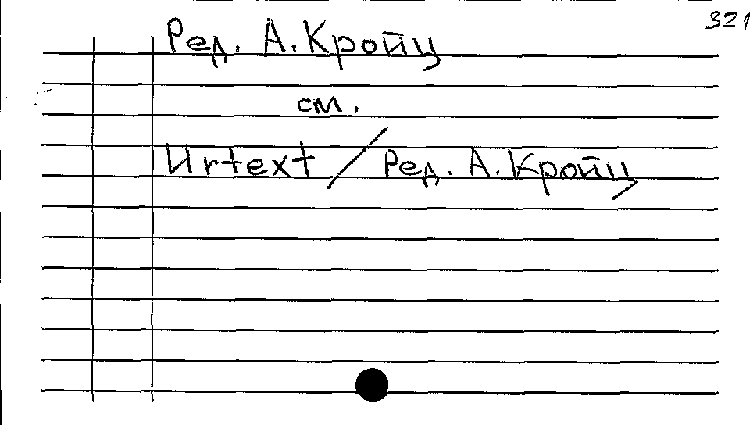 321
Ред. А. Кройц
см.
Urtext / Ред. А. Кройц